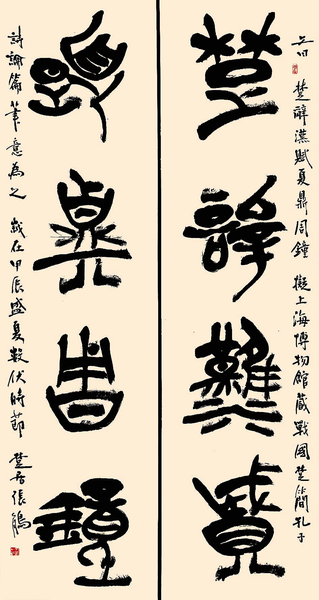 文曰 楚辭漢賦夏鼎周鐘 擬上海博物館藏戰國楚簡孔子
楚辭漢賦
夏鼎周鐘
詩論篇筆意為之 歲在甲辰盛夏數伏時節 楚 張鵬